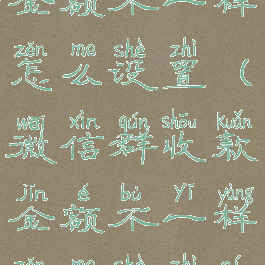 金额不一样
zěn me shè zhì
怎么设置（
wēi xìn qún shōu kuǎn
微信群收款
jīn é bù yī yàng
金额不一样
zěn me shè zhì